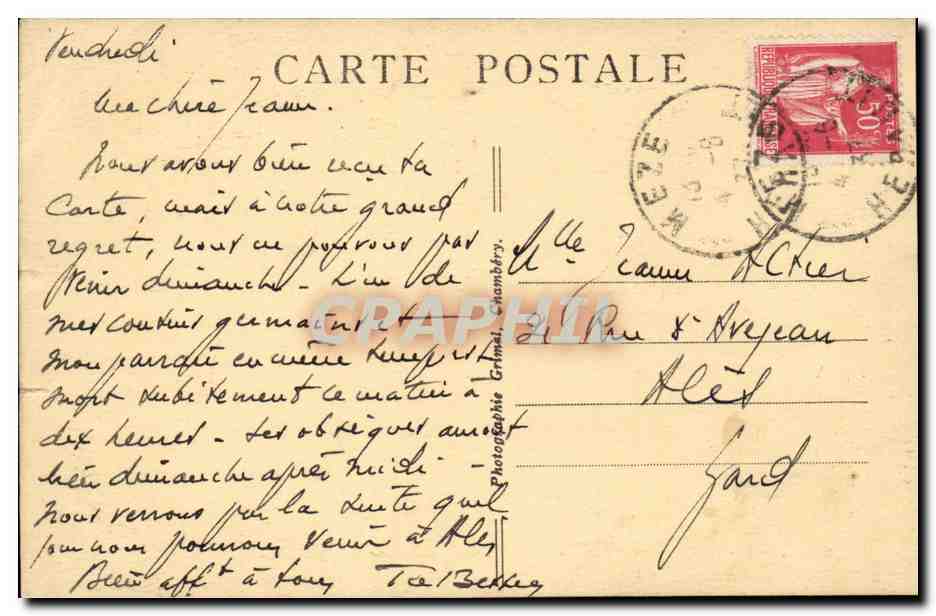 Vendredi
CARTE POSTALE
Ma chère Jeanne.
Nous avons bien reçu ta
Carte, mais à notre grand
regret, nous ne pouvons pas
venir dimanche - L'un de
mes cousins germains et
mon parrain en même temps est
mort subitement ce matin à
dix heures - Ses obsèques auront
lieu dimanche après midi -
Nous verrons par la suite quel
jour nous pourrons venir à Alès
Bien afft à tous
Photographie Grimal, Chambéry.
Mlle Jeanne
Rue d'Avejean
Alès
Gard
MEZE
HERAULT
REPUBLIQUE FRANÇAISE
POSTES
50c
CPAPHIL